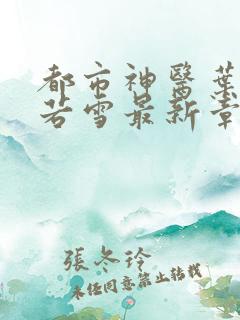 都市神醫葉
若雪最新章
張冬玲
未经同意禁止转载